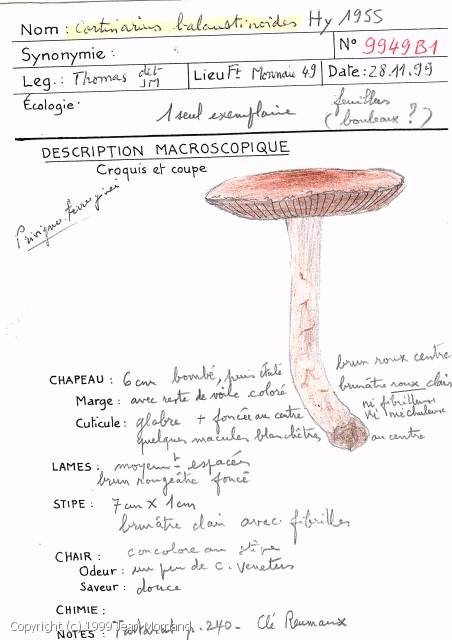 Nom : Cortinarius balaustinoides Hy 1955
Synonymie :
N° 9949B1
Leg. : Thomas det JM
Lieu Ft Monnaie 49
Date : 28.11.99
Écologie :
1 seul exemplaire
feuillus
(bouleaux ?)
DESCRIPTION MACROSCOPIQUE
Croquis et coupe
CHAPEAU : 6 cm bombé, puis étalé
brun roux centre
brunâtre roux clair
Marge : avec reste de voile coloré
ni fibrilleux
ni méchuleux
Cuticule : glabre + foncée au centre
quelques macules blanchâtres
au centre
LAMES : moyennt espacées
brun rougeâtre foncé
STIPE : 7 cm X 1 cm
brunâtre clair avec fibrilles
CHAIR : concolore au stipe
Odeur : un peu de C. venetus
Saveur : douce
CHIMIE :
Copyright (c) 1999 Jean
NOTES : p. 240 - Clé Reumaux